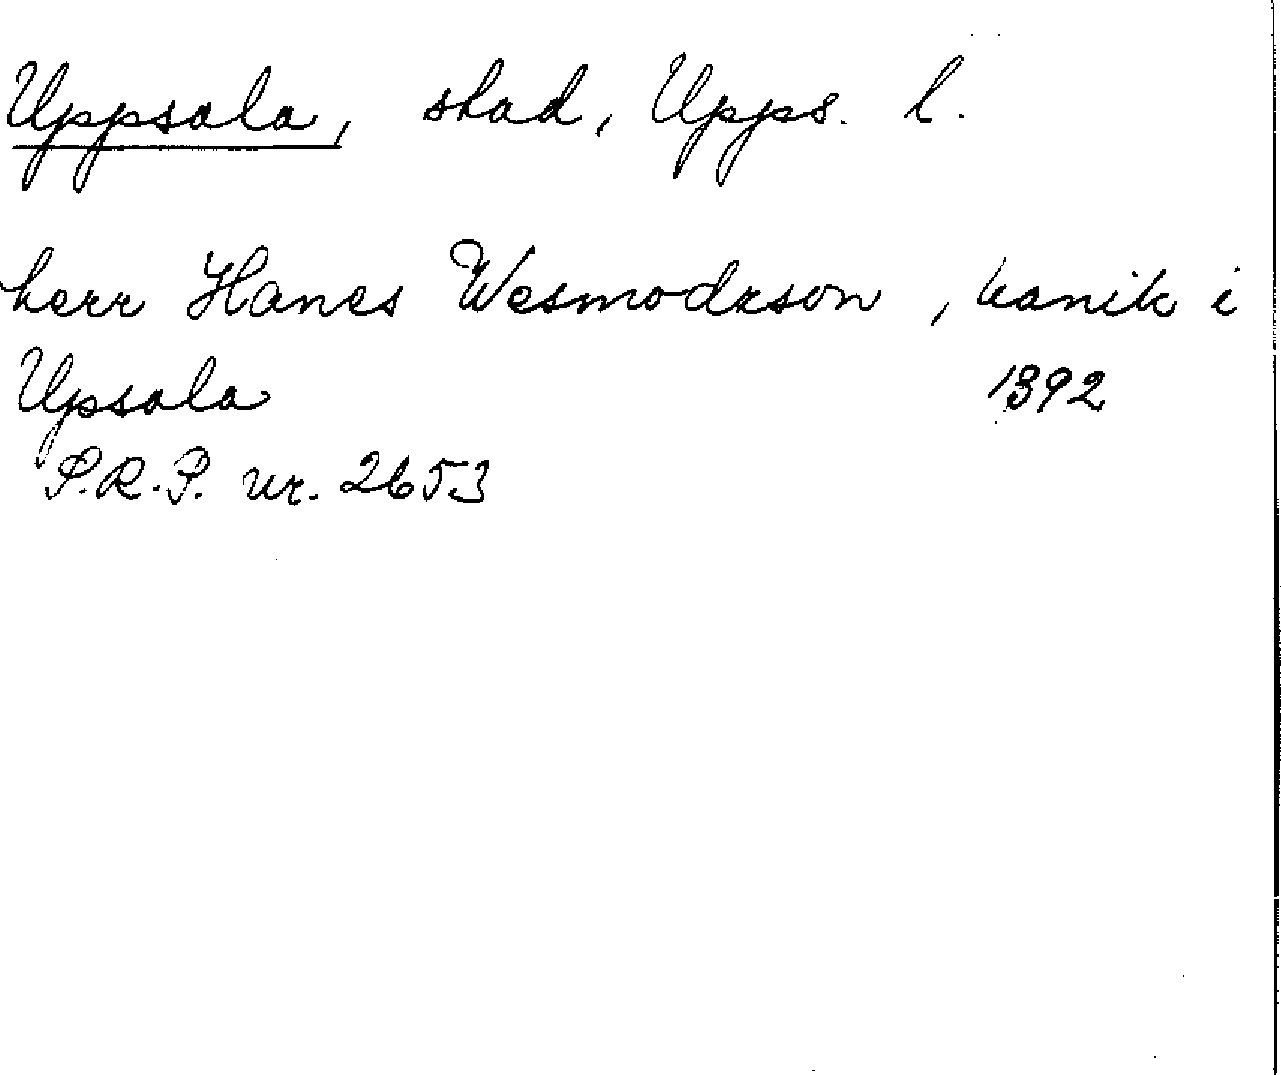 Uppsala, stad, Upps. l.
herr Hanes Wesmodzson, kanik i
Upsala 1392
S.R.P. nr. 2653